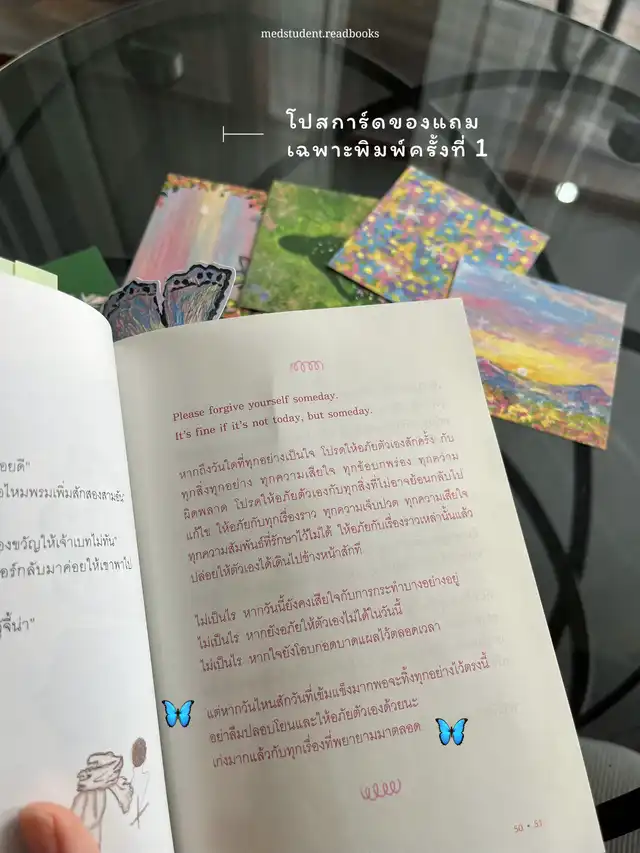 medstudent.readbooks
โปสการ์ดของแถม
เฉพาะพิมพ์ครั้งที่ 1
Please forgive yourself someday.
It's fine if it's not today, but someday.
หากถึงวันใดที่ทุกอย่างเป็นใจ โปรดให้อภัยตัวเองสักครั้ง กับ
ทุกสิ่งทุกอย่าง ทุกความเสียใจ ทุกข้อบกพร่อง ทุกความ
ผิดพลาด โปรดให้อภัยตัวเองกับทุกสิ่งที่ไม่อาจย้อนกลับไป
แก้ไข ให้อภัยกับทุกเรื่องราว ทุกความเจ็บปวด ทุกความเสียใจ
ทุกความสัมพันธ์ที่รักษาไว้ไม่ได้ ให้อภัยกับเรื่องราวเหล่านั้นแล้ว
ปล่อยให้ตัวเองได้เดินไปข้างหน้าสักที
ไม่เป็นไร หากวันนี้ยังคงเสียใจกับการกระทำบางอย่างอยู่
ไม่เป็นไร หากยังอภัยให้ตัวเองไม่ได้ในวันนี้
ไม่เป็นไร หากใจยังโอบกอดบาดแผลไว้ตลอดเวลา
แต่หากวันไหนสักวันที่เข้มแข็งมากพอจะทิ้งทุกอย่างไว้ตรงนี้
อย่าลืมปลอบโยนและให้อภัยตัวเองด้วยนะ
เก่งมากแล้วกับทุกเรื่องที่พยายามมาตลอด
50 • 51
อยดี"
อไหมพรมเพิ่มสักสองสามอัน"
องขวัญให้เจ้าเบทไม่ทัน"
อร์กลับมาค่อยให้เขาพาไป